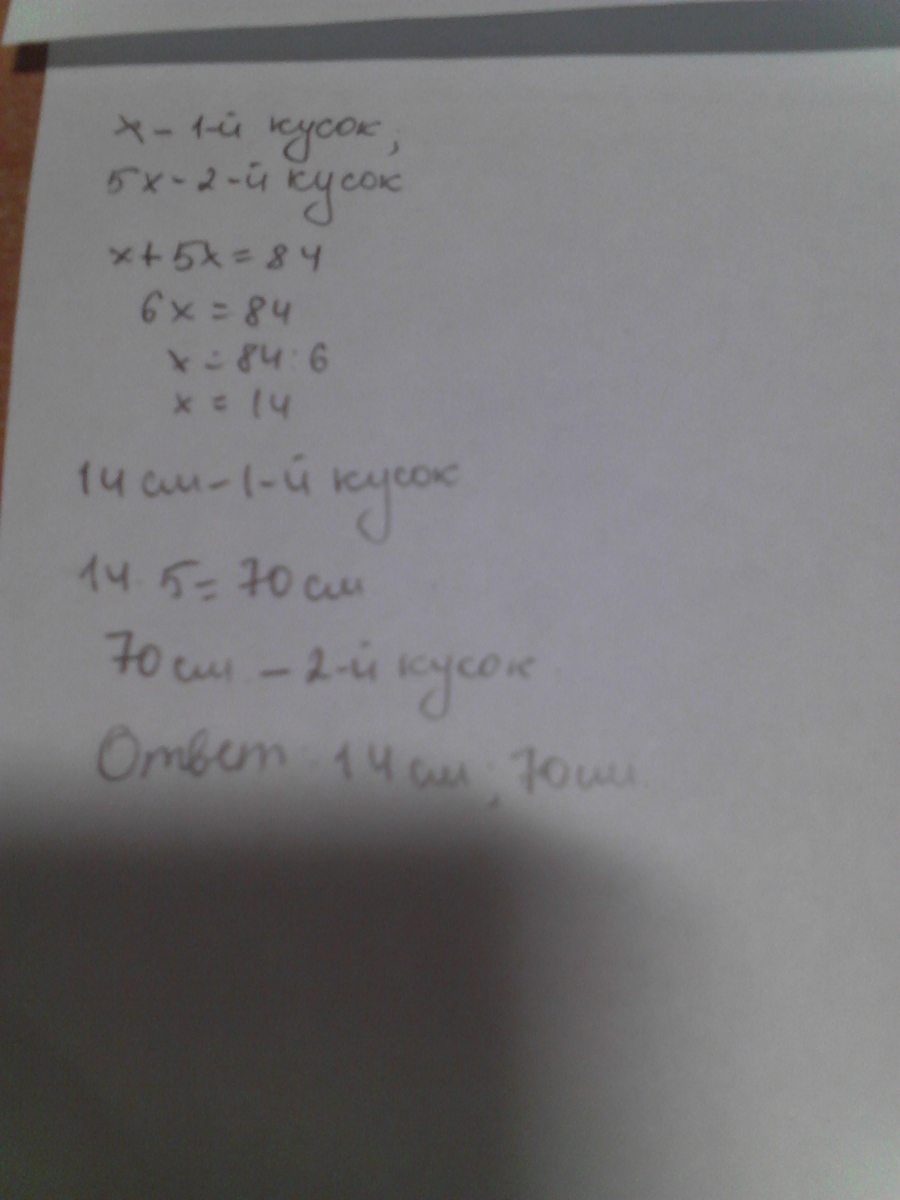 x - 1-й кусок,
5x - 2-й кусок
x + 5x = 84
6x = 84
x = 84 : 6
x = 14
14 см - 1-й кусок
14 · 5 = 70 см
70 см - 2-й кусок
Ответ 14 см; 70 см